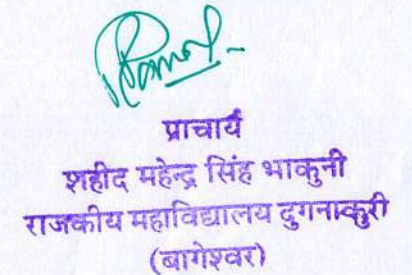 प्राचार्य
शहीद महेन्द्र सिंह भाकुनी
राजकीय महाविद्यालय दुगनाकुरी
(बागेश्वर)